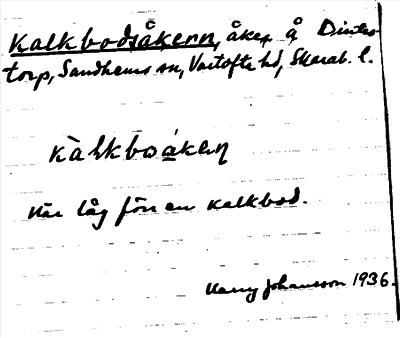 Kalkbodsåkern, åker å Dintes-
torp, Sandhems sn, Vartofta hd, Skarab. l.
kàlkboákeɳ
Här låg förr en kalkbod.
Harry Johansson 1936.